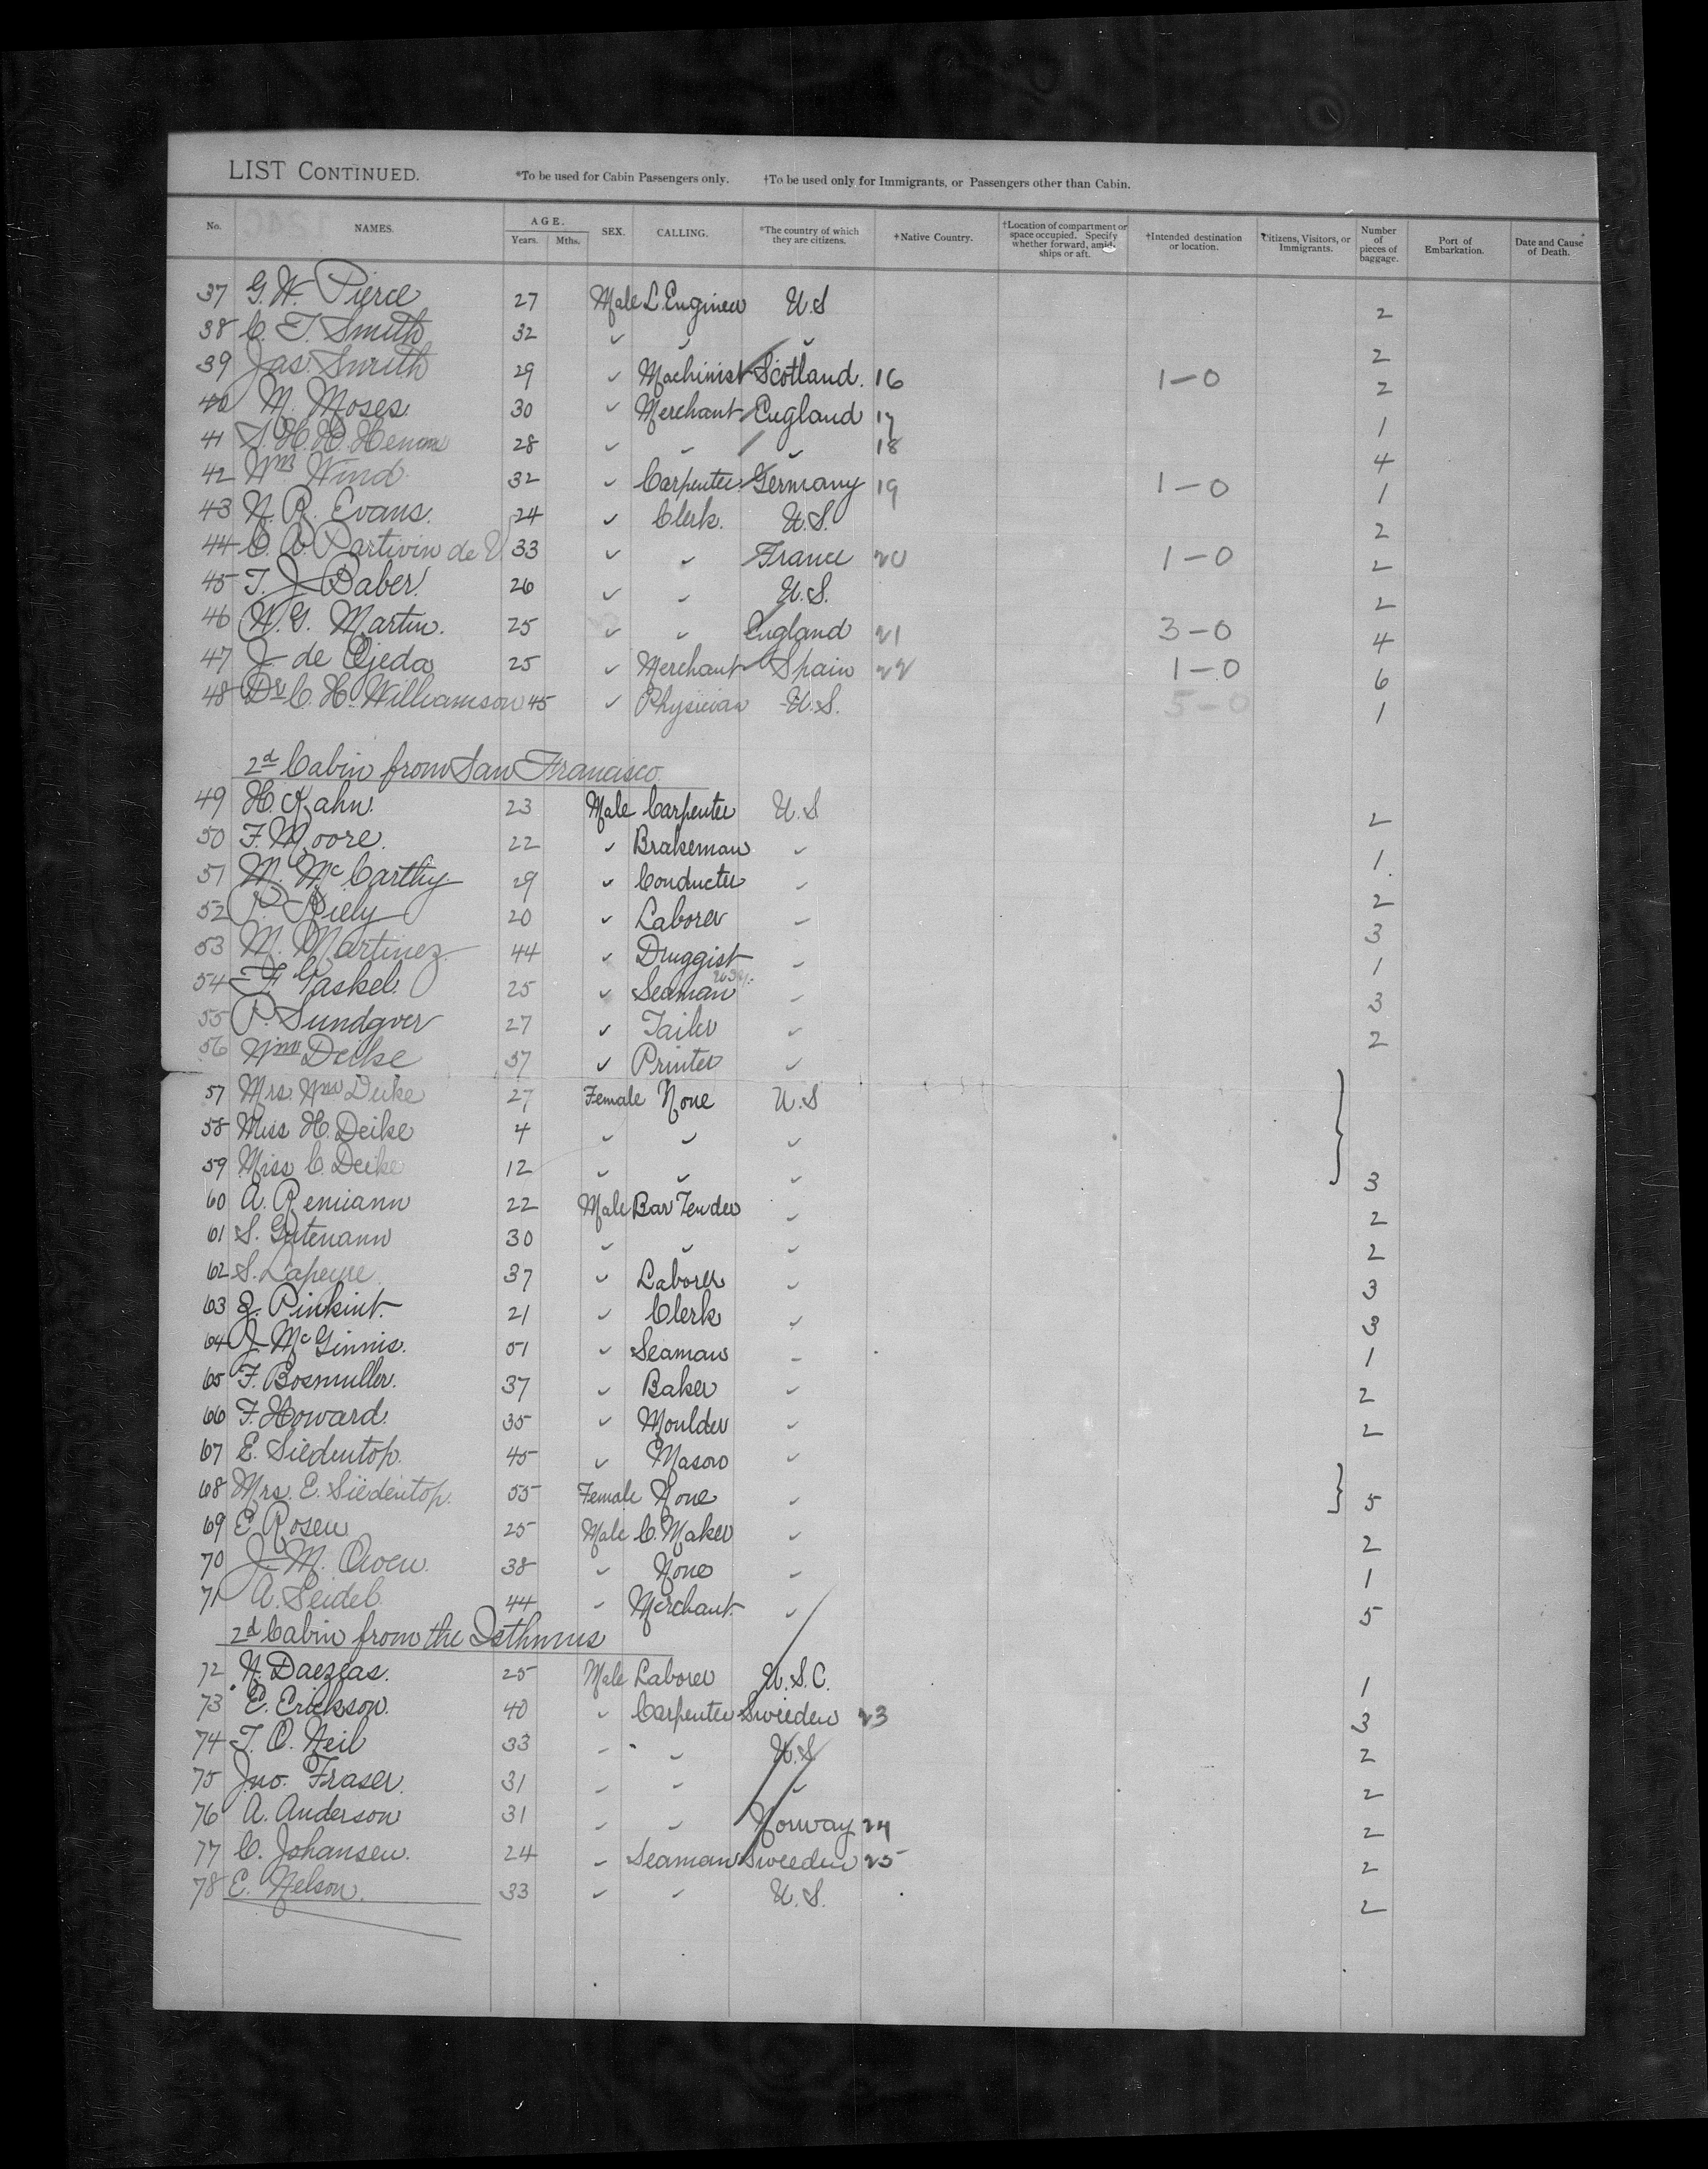 LIST CONTINUED. *To be used for Cabin Passengers only. †To be used only for Immigrants, or Passengers other than Cabin.
No. NAMES. AGE. Years. Mths. SEX. CALLING. *The country of which they are citizens. †Native Country. †Location of compartment or space occupied. Specify whether forward, amidships or aft. †Intended destination or location. Citizens, Visitors, or Immigrants. Number of pieces of baggage. Port of Embarkation. Date and Cause of Death.
37 G. W. Pierce 27 Male L. Engineer U.S 2
38 C. T. Smith 32 " " " 2
39 Jas. Smith 29 " Machinist Scotland. 16 1-0 2
40 M. Moses 30 " Merchant England 17 1
41 S. H. H. 28 " " " 18 4
42 Wm Wind 32 " Carpenter Germany 19 1-0 1
43 N. R. Evans. 24 " Clerk. U.S. 2
44 C. A. Partivin de V 33 " " France 20 1-0 2
45 T. J. Baber. 26 " " U.S. 2
46 W. G. Martin. 25 " " England 21 3-0 4
47 J. de Ojeda 25 " Merchant Spain 22 1-0 6
48 Dr. C. H. Williamson 45 " Physician U.S. 5-0 1
2d Cabin from San Francisco.
49 H. Kahn. 23 Male Carpenter U.S 2
50 F. Moore. 22 " Brakeman " 1
51 M. McCarthy 29 " Conducter " 2
52 P. Riely 20 " Laborer " 3
53 M. Martinez 44 " Druggist " 1
54 F. Gaskel. 25 " Seaman " 3
55 P. Sundgver 27 " Tailor " 2
56 Wm Deike 37 " Printer "
57 Mrs. Wm Deike 27 Female None U.S
58 Miss H. Deike 4 " " "
59 Miss C. Deike 12 " " " 3
60 A. Remiann 22 Male Bar Tender " 2
61 S. Gutenann 30 " " " 2
62 S. Lapeyre 37 " Laborer " 3
63 J. Pinkint. 21 " Clerk " 3
64 J. McGinnis. 51 " Seaman " 1
65 F. Bosmuller. 37 " Baker " 2
66 F. Howard. 35 " Moulder " 2
67 E. Siedentop. 45 " Mason "
68 Mrs. E. Siedentop. 55 Female None " 5
69 E Rosen 25 Male C. Maker " 2
70 J. M. Owen. 38 " None " 1
71 A. Seidel. 44 " Merchant " 5
2d Cabin from the Isthmus
72 N. Daezeas. 25 Male Laborer U.S.C. 1
73 E. Erickson. 40 " Carpenter Sweeden 23 3
74 T. O. Neil 33 " " U.S 2
75 Jno. Fraser. 31 " " " 2
76 A. Anderson 31 " " Norway 24 2
77 C. Johansen. 24 " Seaman Sweeden 25 2
78 E. Nelson. 33 " " U.S. 2